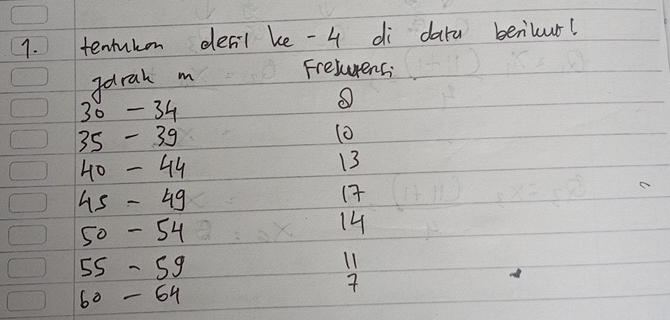 1. tentukan desil ke - 4 di data berikut!
jarak m Frekuensi
30 - 34 8
35 - 39 10
40 - 44 13
45 - 49 17
50 - 54 14
55 - 59 11
60 - 64 7